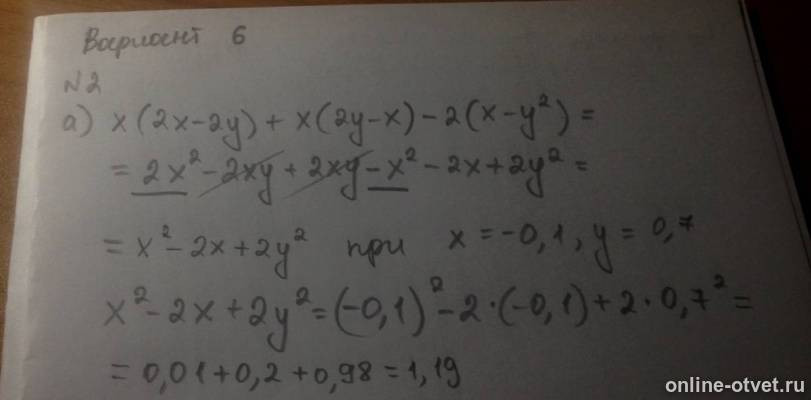 Вариант 6
N2
а) x(2x-2y)+x(2y-x)-2(x-y²)=
=2x²-2xy+2xy-x²-2x+2y²=
=x²-2x+2y² при x=-0,1, y=0,7
x²-2x+2y²=(-0,1)²-2·(-0,1)+2·0,7²=
=0,01+0,2+0,98=1,19
online-otvet.ru